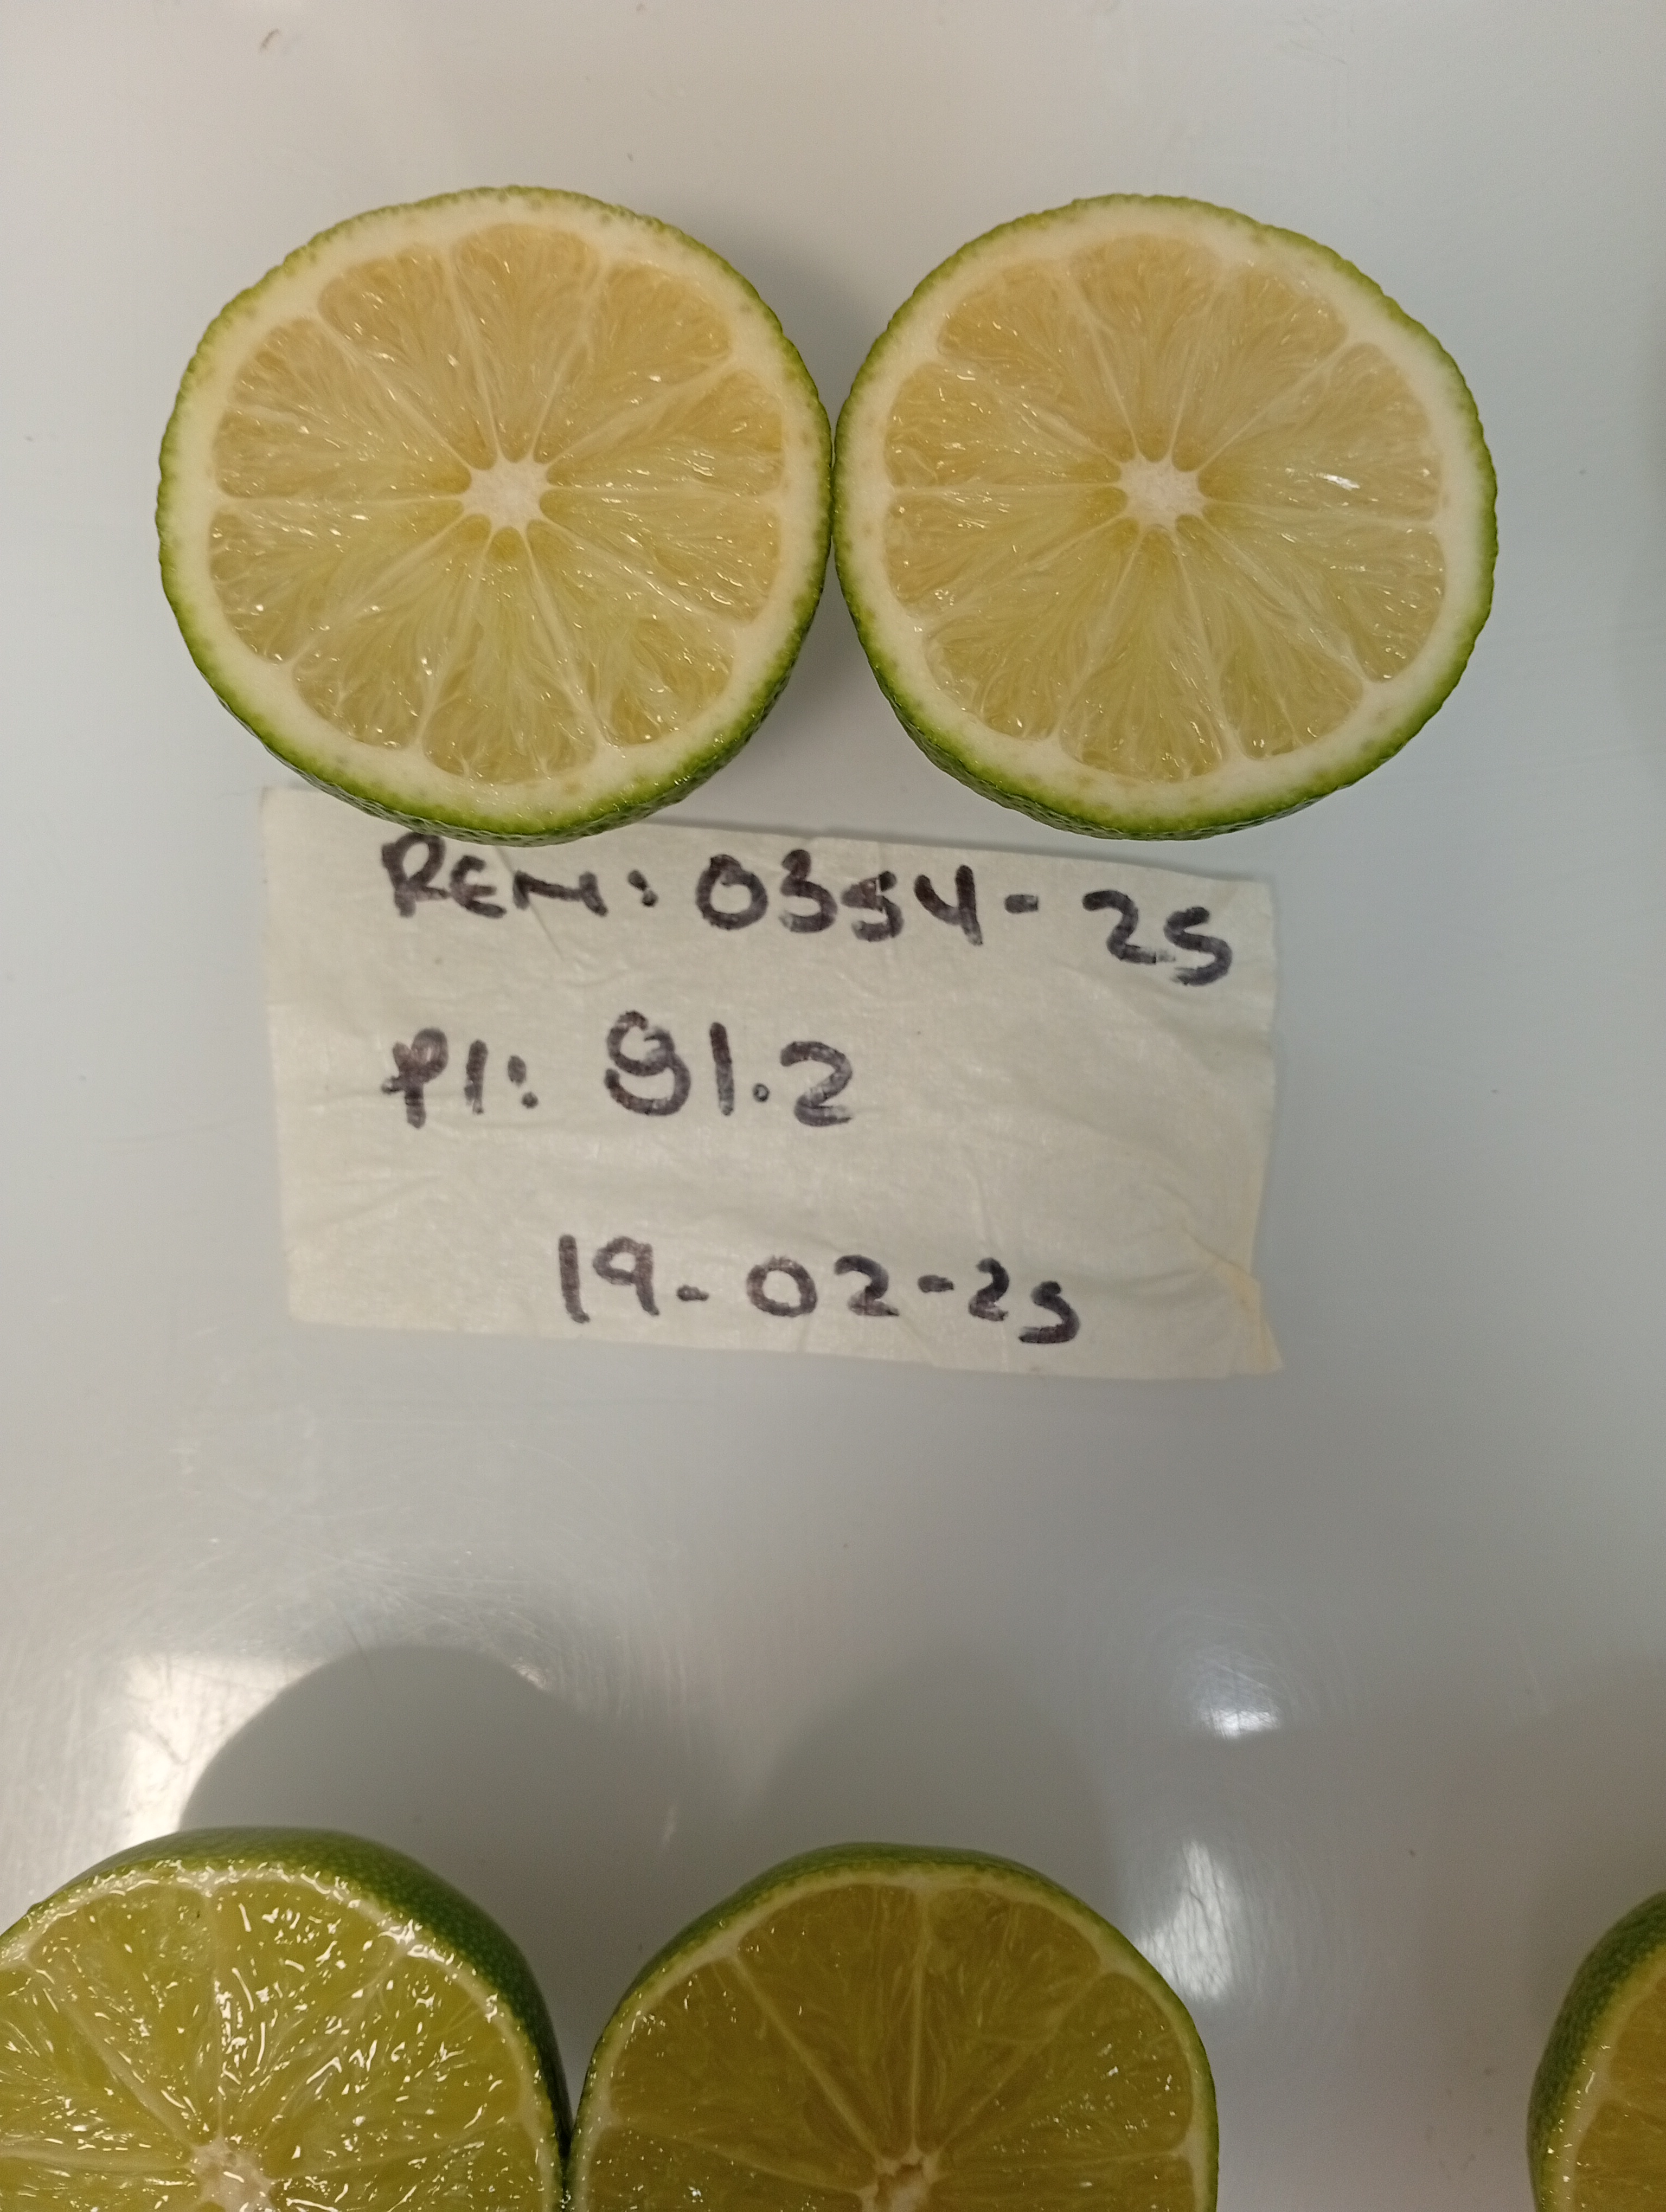 REM: 0354-25
PI: 91.2
19-02-25